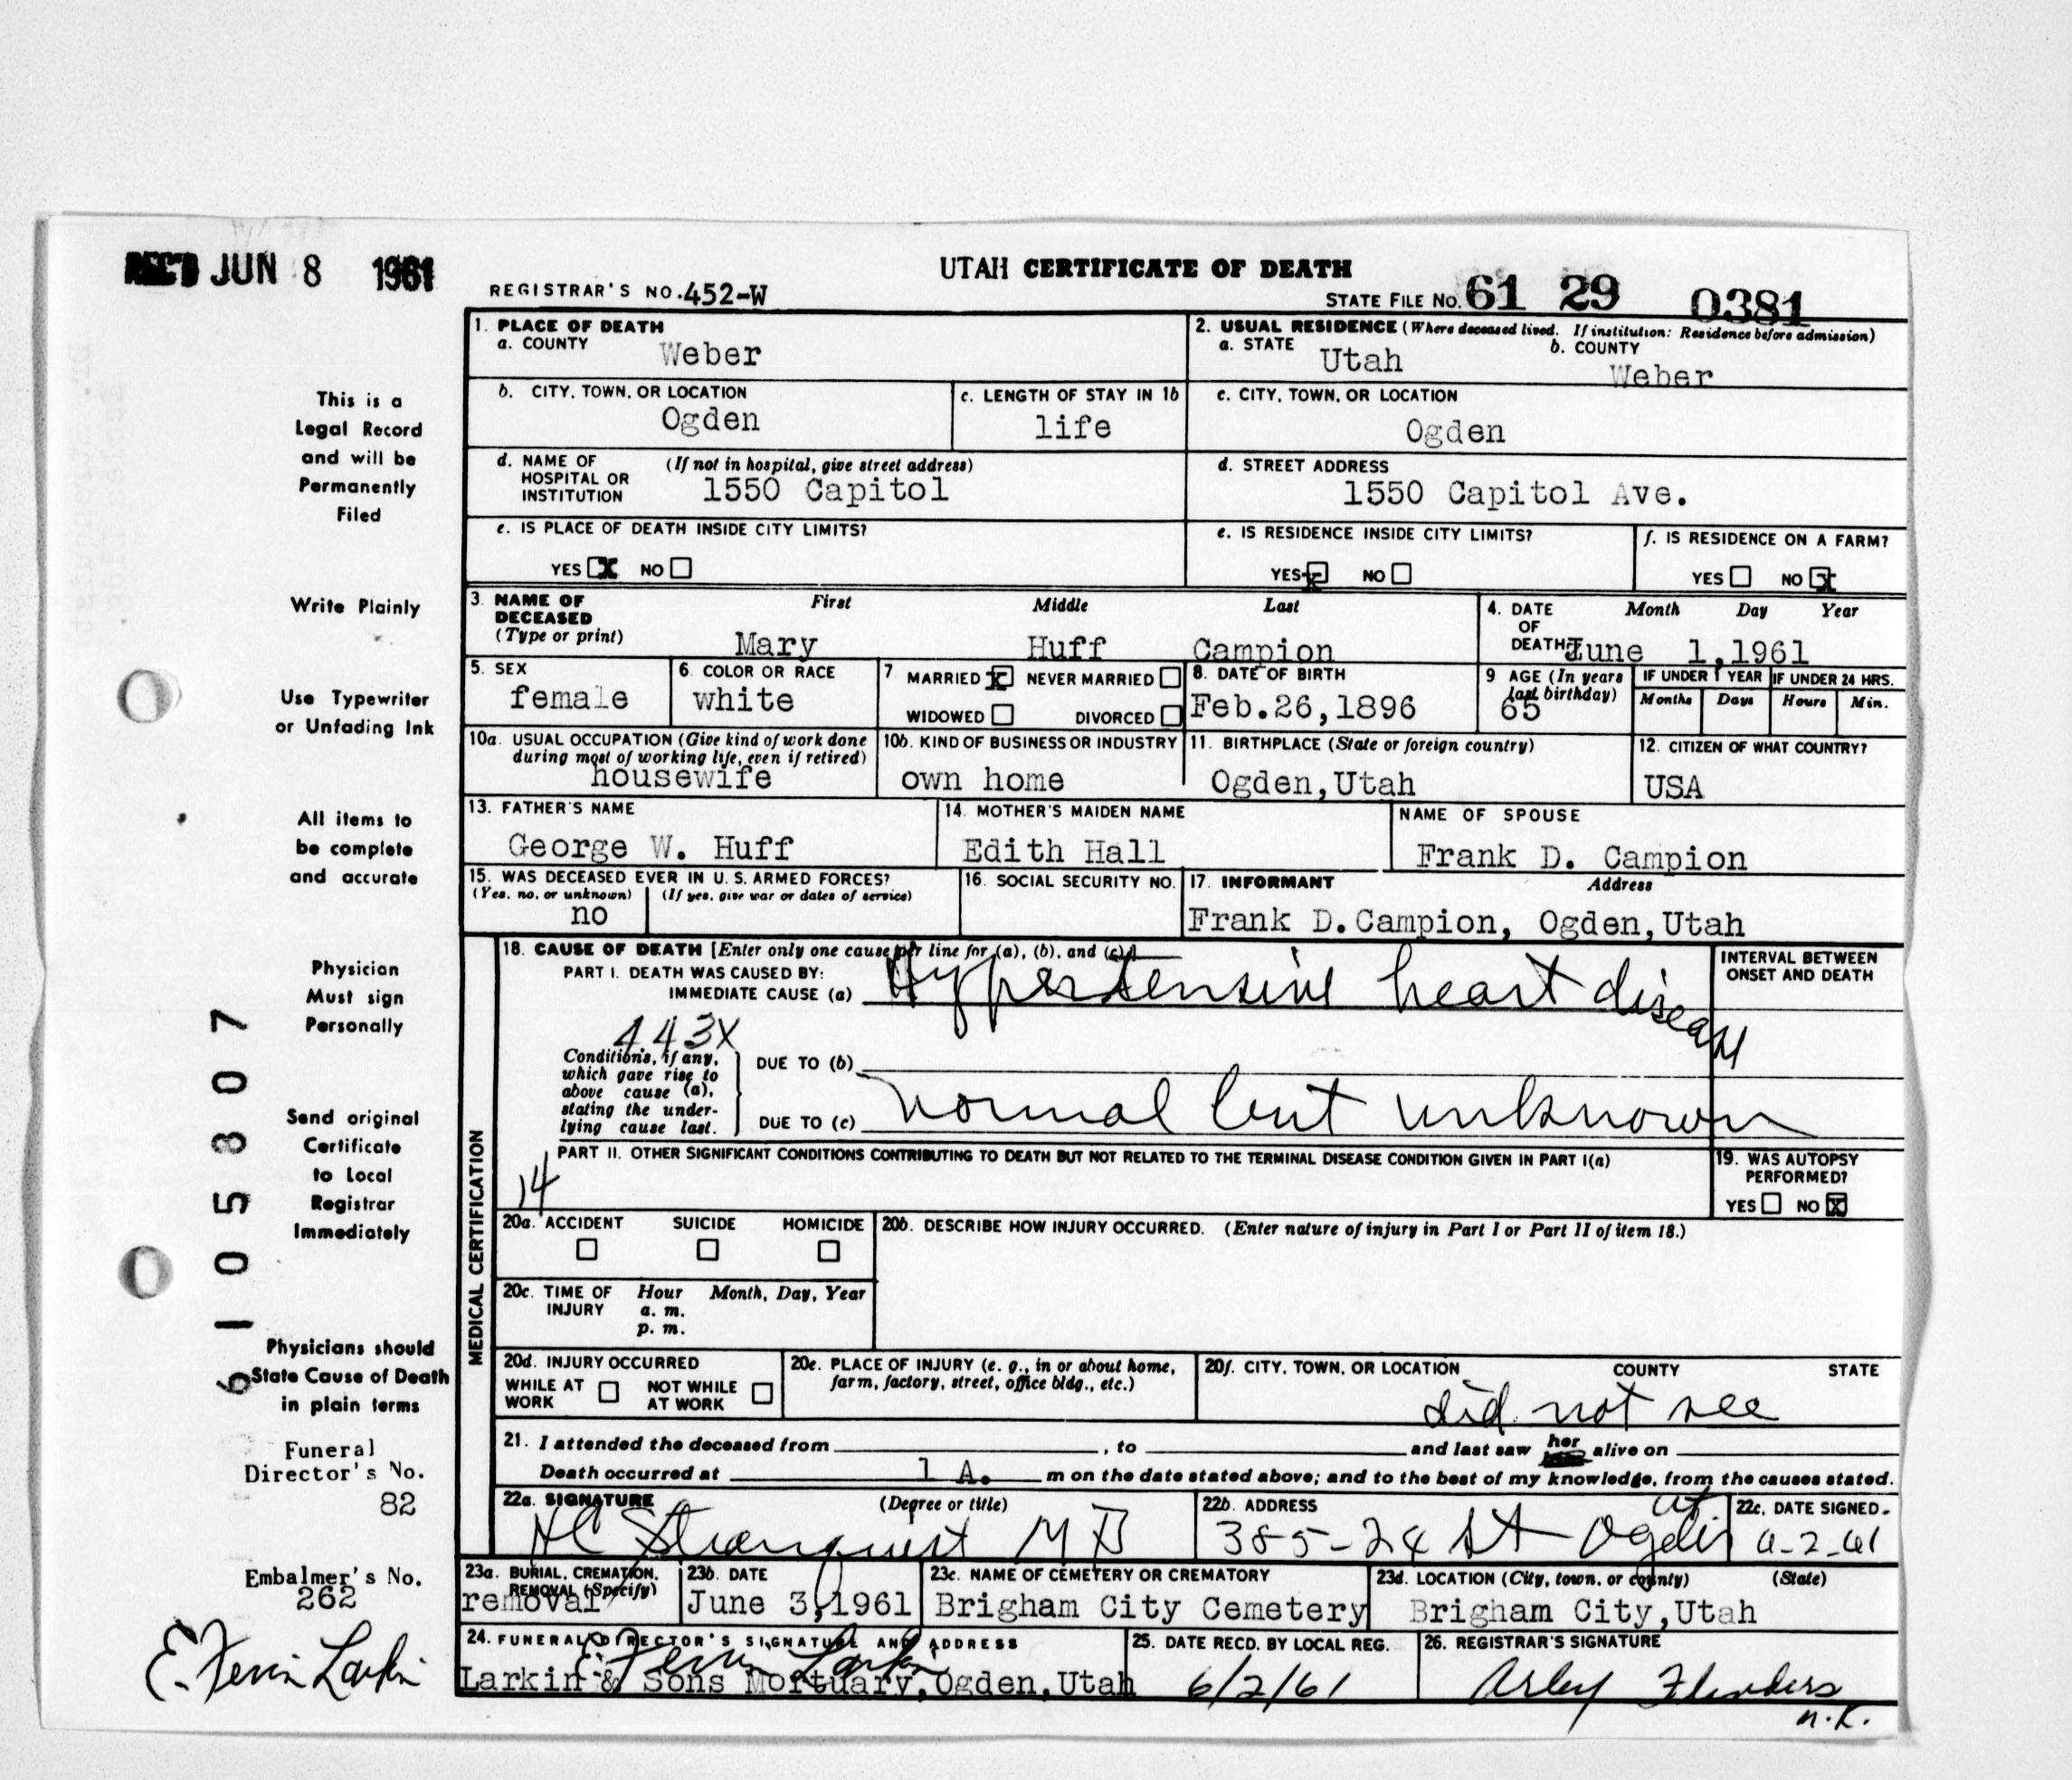 REC'D JUN 8 1961
UTAH CERTIFICATE OF DEATH
REGISTRAR'S NO. 452-W
STATE FILE NO. 61 29 0381
1. PLACE OF DEATH
a. COUNTY
Weber
2. USUAL RESIDENCE (Where deceased lived. If institution: Residence before admission)
a. STATE
Utah
b. COUNTY
Weber
b. CITY, TOWN, OR LOCATION
Ogden
c. LENGTH OF STAY IN 1b
life
c. CITY, TOWN, OR LOCATION
Ogden
d. NAME OF HOSPITAL OR INSTITUTION
(If not in hospital, give street address)
1550 Capitol
d. STREET ADDRESS
1550 Capitol Ave.
e. IS PLACE OF DEATH INSIDE CITY LIMITS?
YES X NO
e. IS RESIDENCE INSIDE CITY LIMITS?
YES x NO
f. IS RESIDENCE ON A FARM?
YES NO x
3. NAME OF DECEASED
(Type or print)
First Middle Last
Mary Huff Campion
4. DATE OF DEATH
Month Day Year
June 1, 1961
5. SEX
female
6. COLOR OR RACE
white
7 MARRIED x NEVER MARRIED
WIDOWED DIVORCED
8. DATE OF BIRTH
Feb.26,1896
9 AGE (In years last birthday)
65
IF UNDER 1 YEAR
Months Days
IF UNDER 24 HRS.
Hours Min.
10a. USUAL OCCUPATION (Give kind of work done during most of working life, even if retired)
housewife
10b. KIND OF BUSINESS OR INDUSTRY
own home
11. BIRTHPLACE (State or foreign country)
Ogden,Utah
12. CITIZEN OF WHAT COUNTRY?
USA
13. FATHER'S NAME
George W. Huff
14. MOTHER'S MAIDEN NAME
Edith Hall
NAME OF SPOUSE
Frank D. Campion
15. WAS DECEASED EVER IN U. S. ARMED FORCES?
(Yes, no, or unknown) (If yes, give war or dates of service)
no
16. SOCIAL SECURITY NO.
17. INFORMANT Address
Frank D.Campion, Ogden,Utah
MEDICAL CERTIFICATION
18. CAUSE OF DEATH [Enter only one cause per line for (a), (b), and (c).]
PART I. DEATH WAS CAUSED BY:
IMMEDIATE CAUSE (a)
Hypertensive heart disease
INTERVAL BETWEEN ONSET AND DEATH
443X
Conditions, if any,
which gave rise to
above cause (a),
stating the under-
lying cause last.
DUE TO (b)
DUE TO (c)
normal but unknown
PART II. OTHER SIGNIFICANT CONDITIONS CONTRIBUTING TO DEATH BUT NOT RELATED TO THE TERMINAL DISEASE CONDITION GIVEN IN PART I(a)
14
19. WAS AUTOPSY PERFORMED?
YES NO X
20a. ACCIDENT SUICIDE HOMICIDE
20b. DESCRIBE HOW INJURY OCCURRED. (Enter nature of injury in Part I or Part II of item 18.)
20c. TIME OF INJURY
Hour Month, Day, Year
a. m.
p. m.
20d. INJURY OCCURRED
WHILE AT WORK NOT WHILE AT WORK
20e. PLACE OF INJURY (e. g., in or about home, farm, factory, street, office bldg., etc.)
20f. CITY, TOWN, OR LOCATION COUNTY STATE
did not see
21. I attended the deceased from , to and last saw her alive on
Death occurred at 1 A. m on the date stated above; and to the best of my knowledge, from the causes stated.
22a. SIGNATURE (Degree or title)
HC Stranquist MD
22b. ADDRESS
385-24 St Ogden Ut
22c. DATE SIGNED.
6-2-61
23a. BURIAL, CREMATION, REMOVAL (Specify)
removal
23b. DATE
June 3,1961
23c. NAME OF CEMETERY OR CREMATORY
Brigham City Cemetery
23d. LOCATION (City, town, or county) (State)
Brigham City,Utah
24. FUNERAL DIRECTOR'S SIGNATURE AND ADDRESS
E. Ferrin Larkin
Larkin & Sons Mortuary,Ogden,Utah
25. DATE RECD. BY LOCAL REG.
6/2/61
26. REGISTRAR'S SIGNATURE
Arley Flinders
n.K.
This is a
Legal Record
and will be
Permanently
Filed
Write Plainly
Use Typewriter
or Unfading Ink
All items to
be complete
and accurate
Physician
Must sign
Personally
Send original
Certificate
to Local
Registrar
Immediately
Physicians should
State Cause of Death
in plain terms
6105807
Funeral
Director's No.
82
Embalmer's No.
262
E. Ferrin Larkin